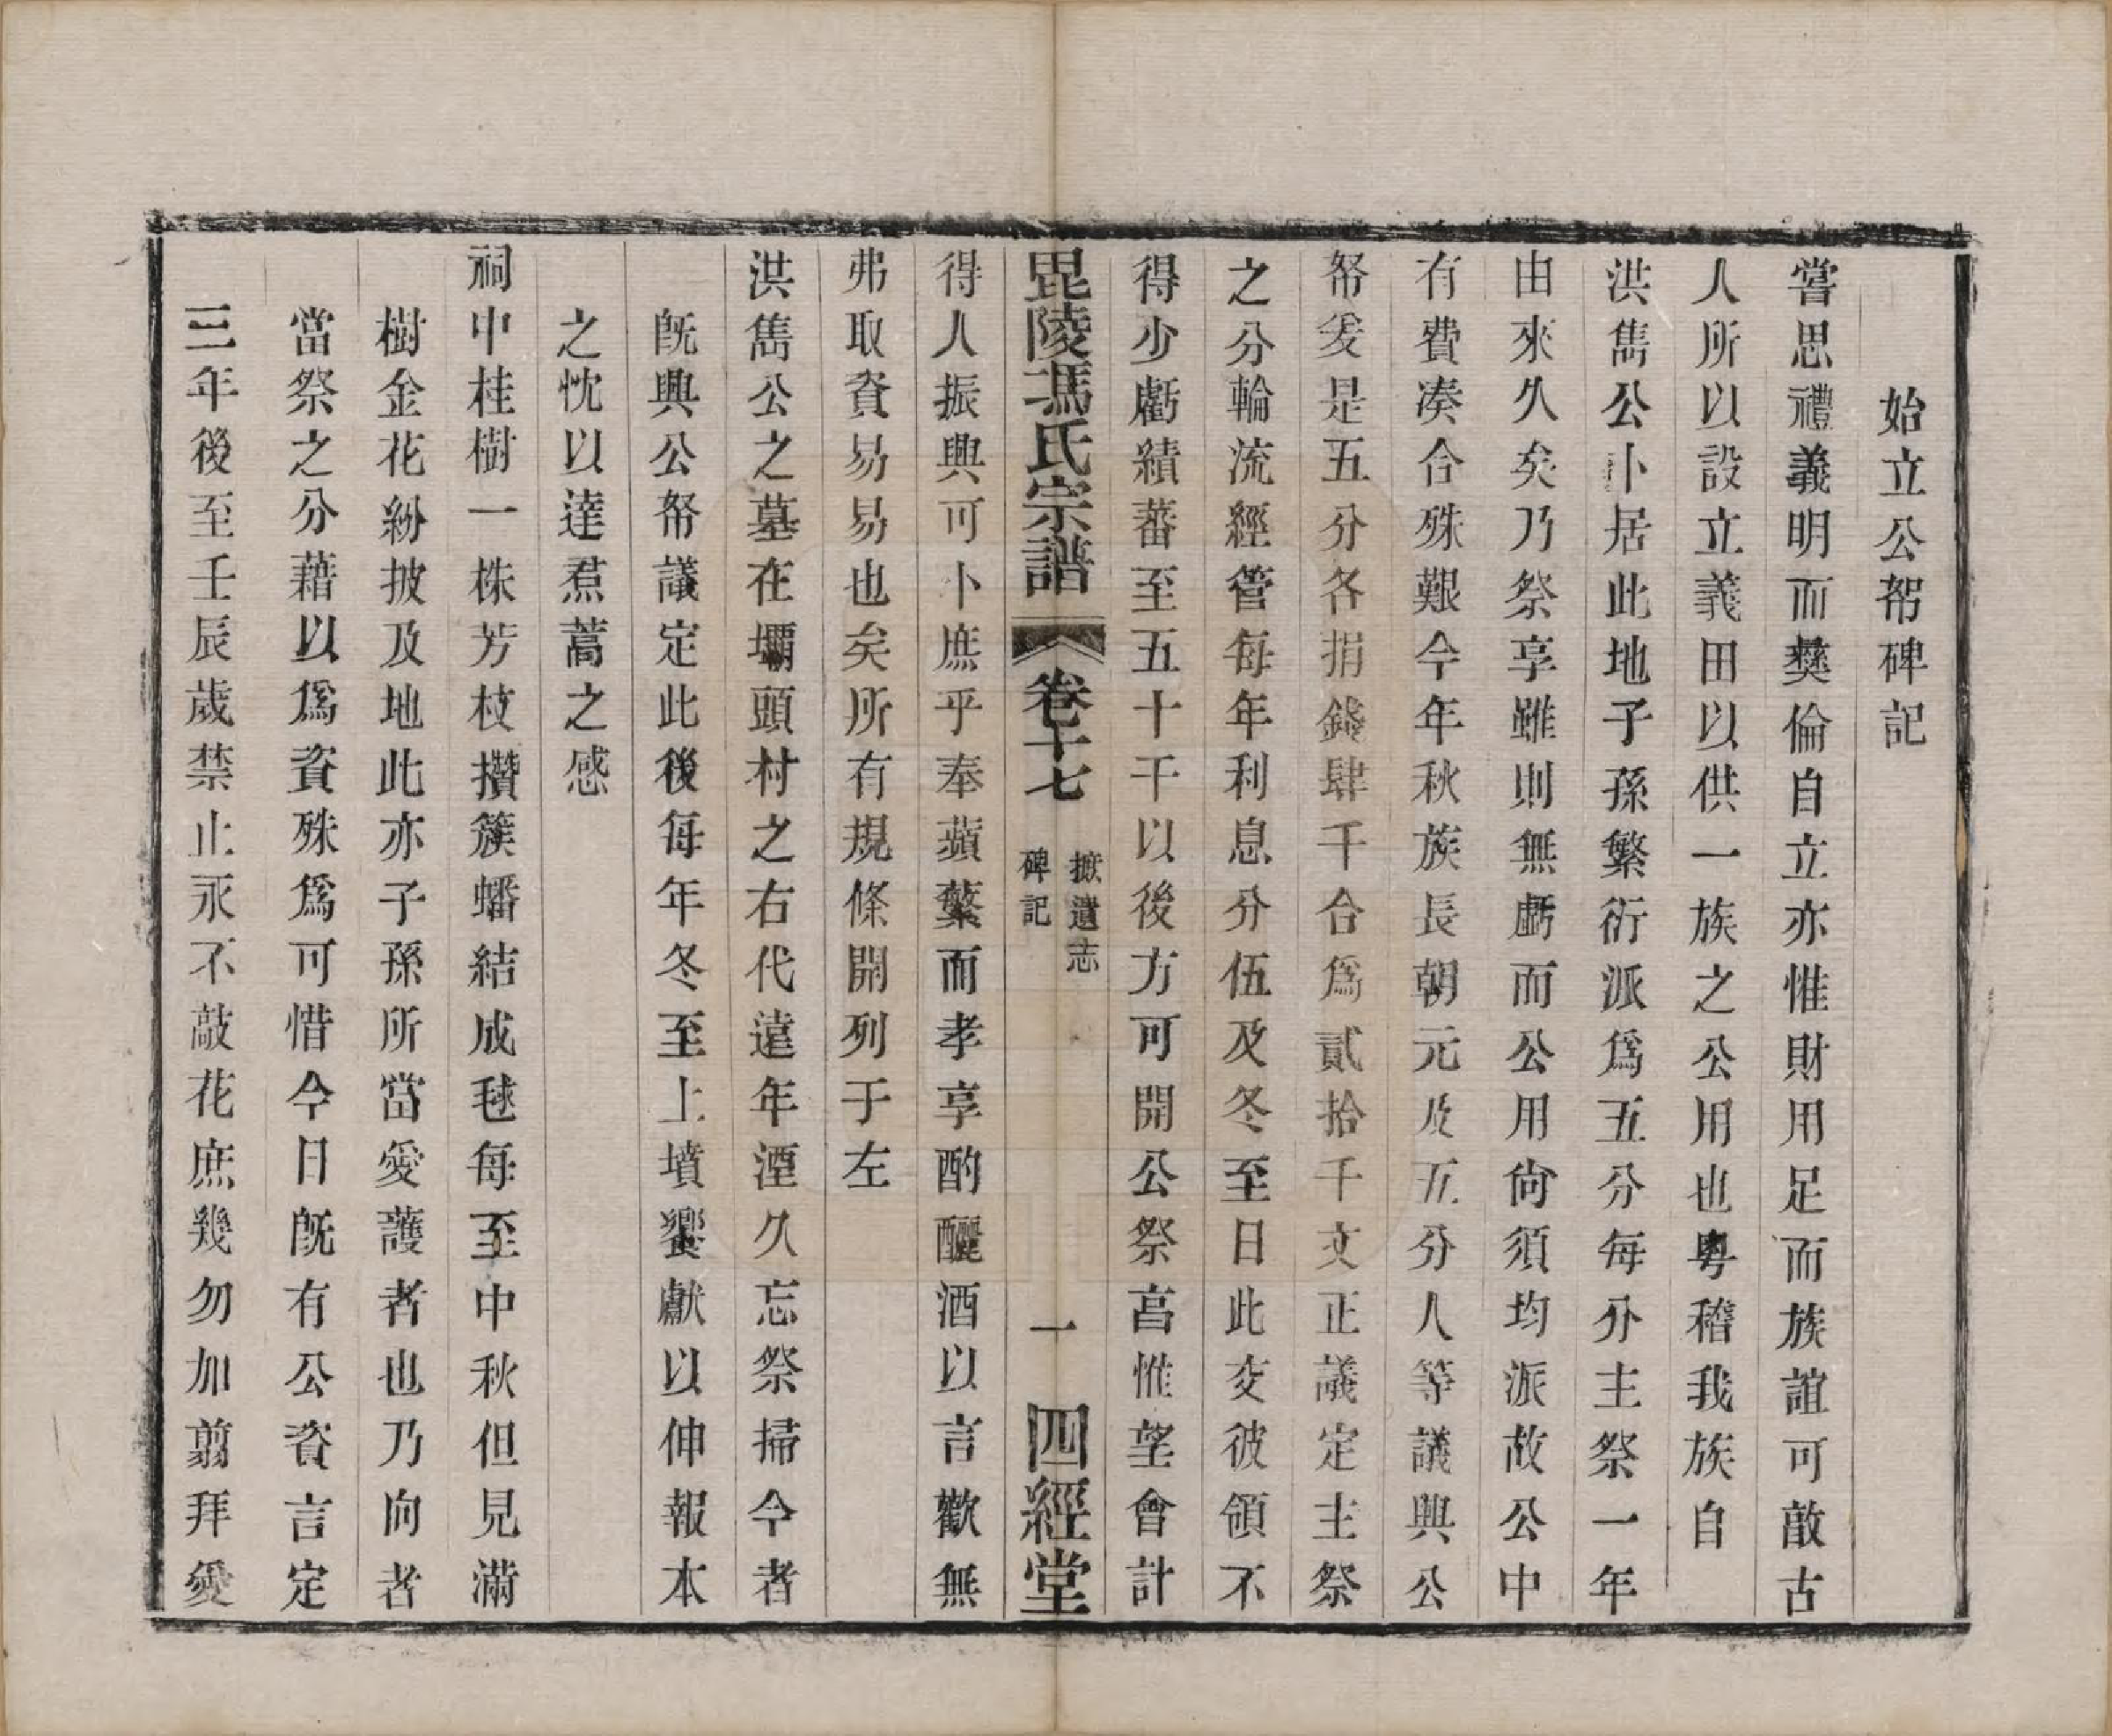 始立公帑碑記
嘗思禮義明而彝倫自立亦惟財用足而族誼可敵古
人所以設立義田以供一族之公用也粵稽我族自
洪雋公卜居此地子孫繁衍派為五分每分主祭一年
由來久矣乃祭享雖則無虧而公用尙須均派故公中
有費湊合殊艱今年秋族長朝元及五分人等議興公
帑爰是五分各捐錢肆千合爲貳拾千文正議定主祭
之分輪流經管每年利息分伍及冬至日此交彼領不
得少虧績蕃至五十千以後方可開公祭亯惟望會計
毘陵馮氏宗譜 卷十七 摭遺志 碑記 一 四經堂
得人振興可卜庶乎奉蘋蘩而孝享酌釃酒以言歡無
弗取資易易也矣所有規條開列于左
洪雋公之墓在壩頭村之右代遠年湮久忘祭掃今者
既興公帑議定此後每年冬至上墳饗獻以伸報本
之忱以達焄蒿之感
祠中桂樹一株芳枝攢簇蟠結成毬每至中秋但見滿
樹金花紛披及地此亦子孫所當愛護者也乃向者
當祭之分藉以爲資殊爲可惜今日既有公資言定
三年後至壬辰歲禁止永不敲花庶幾勿加翦拜愛